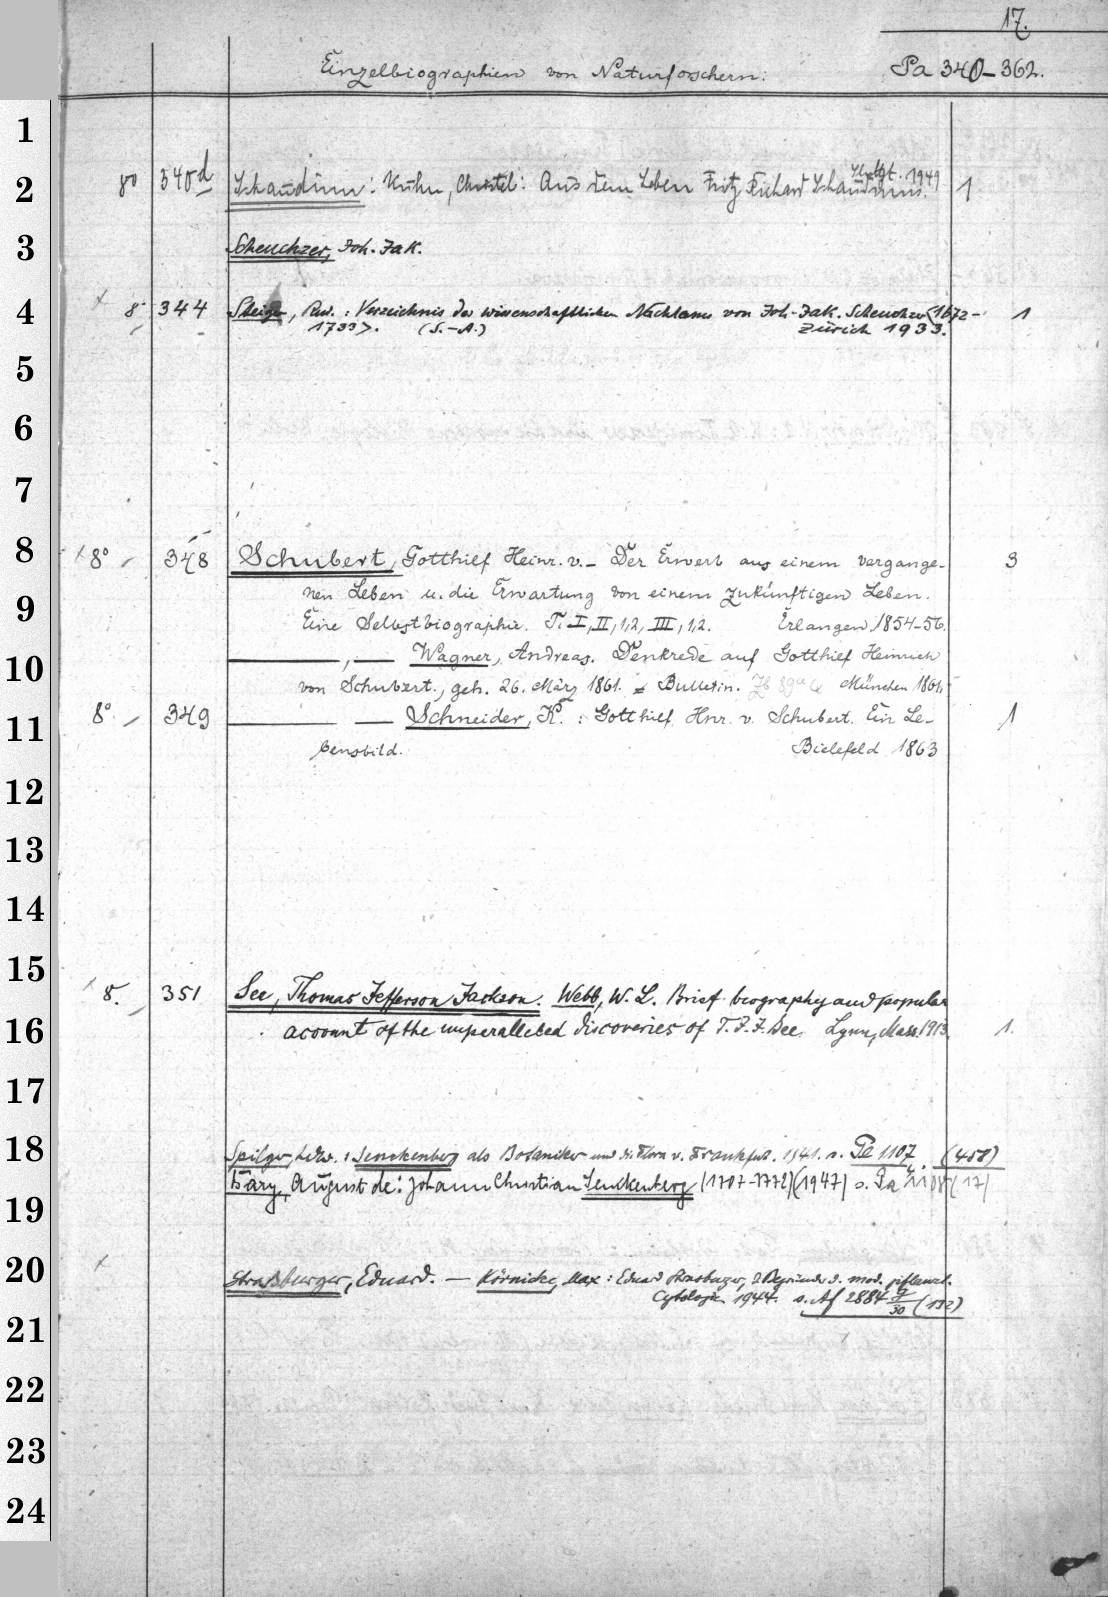 17.
Einzelbiographien von Naturforschern. Pa 340-362.
1
2 8° 340d Schaudinn: Kuhn, Christel: Aus dem Leben Fritz Richard Schaudinns. Stuttgt. 1949 1
3 Scheuchzer, Joh. Jak.
4 8° 344 Steiger, Rud.: Verzeichnis des wissenschaftlichen Nachlasses von Joh. Jak. Scheuchzer <1672- 1
1733>. (S.-A.) Zürich 1933.
5
6
7
8 8° 348 Schubert, Gotthilf Heinr. v. - Der Erwerb aus einem vergange- 3
nen Leben u. die Erwartung von einem zukünftigen Leben.
9 Eine Selbstbiographie. T. I, II, 1,2, III, 1,2. Erlangen 1854-56.
10 —, — Wagner, Andreas. Denkrede auf Gotthilf Heinrich
von Schubert., geh. 26. März 1861. Bulletin. München 1861.
11 8° 349 — — Schneider, K.: Gotthilf Hnr. v. Schubert. Ein Le- 1
bensbild. Bielefeld 1863
12
13
14
15 8° 351 See, Thomas Jefferson Jackson. Webb, W. L. Brief biography and popular
16 account of the unparalleled discoveries of T. J. J. See. Lynn, Mass. 1913. 1.
17
18 Spilger, Ldw.: Senckenberg als Botaniker und die Flora v. Frankfurt. 1941. s. Pa 1107 (458)
19 Bary, August de: Johann Christian Senckenberg (1707-1772) (1947) s. Pa 1108 (17)
20 Straßburger, Eduard. — Körnicke, Max: Eduard Strasburger, d. Begründer d. mod. pflanzl.
Cytologie 1944. s. Af 2884 9/30 (192)
21
22
23
24